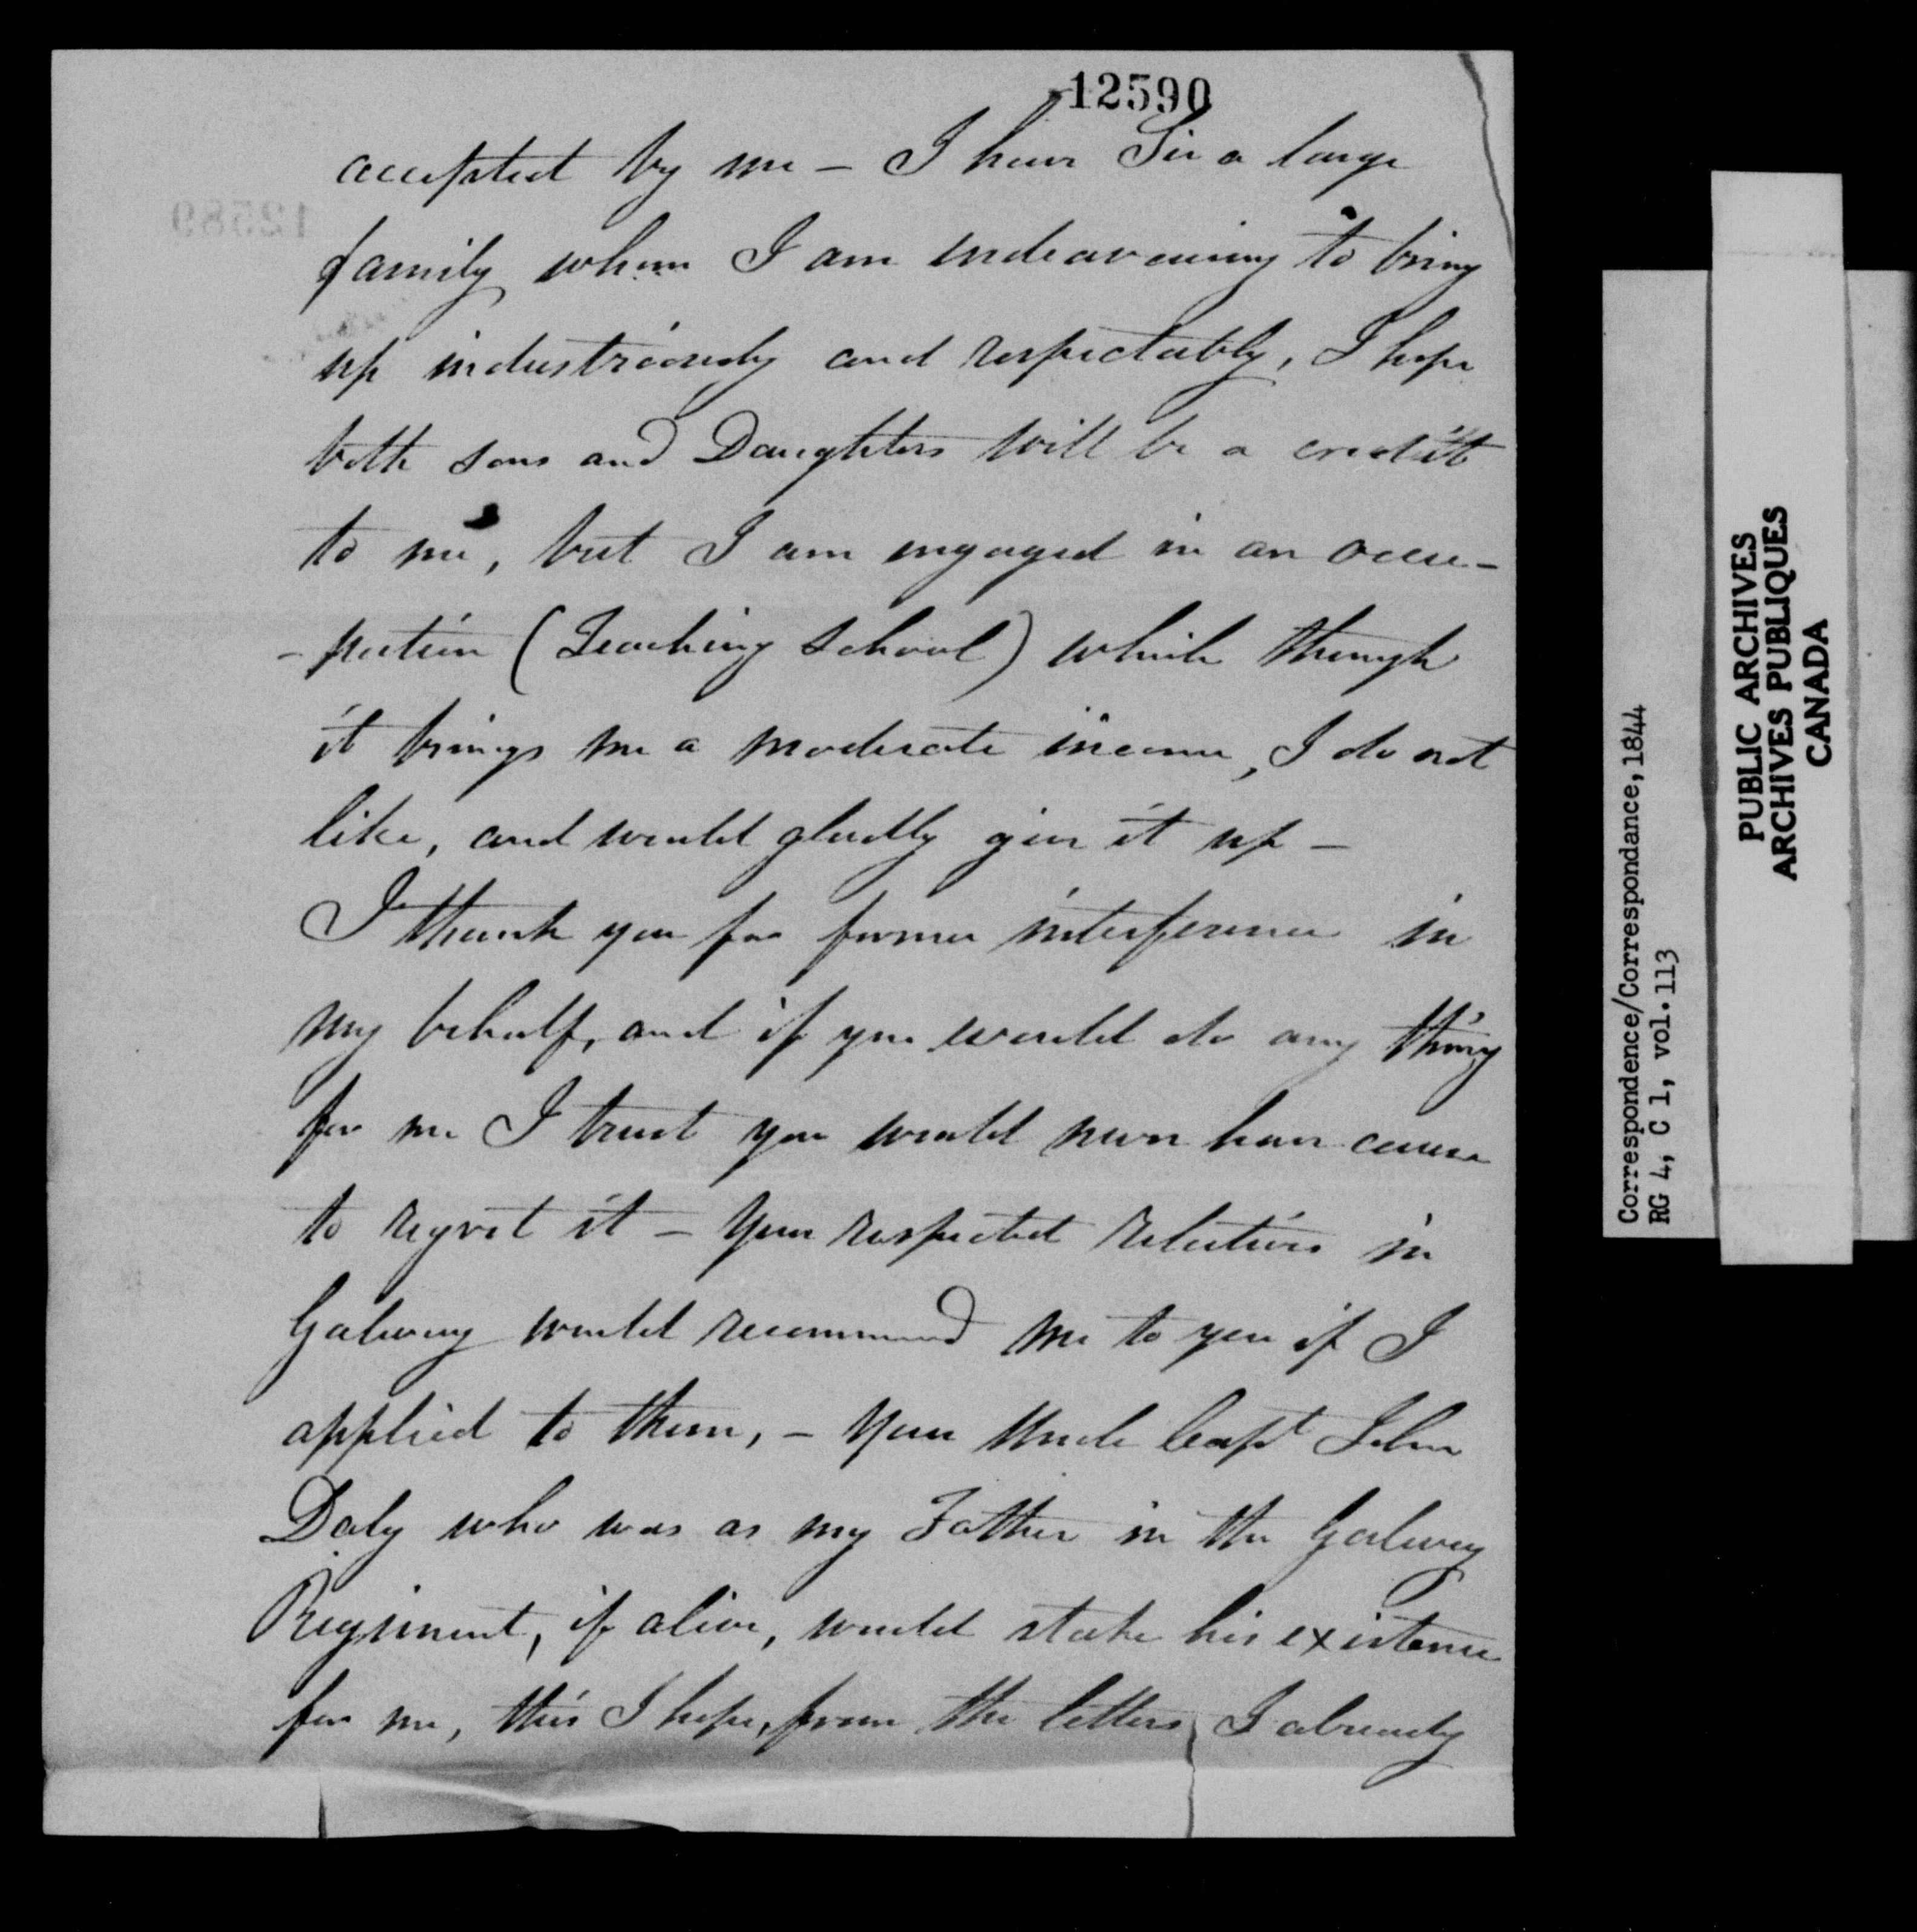 12590
accepted by me – I have Sir a large
family whom I am endeavouring to bring
up industriously and respectably, I hope
both sons and Daughters will be a credit
to me, but I am engaged in an occu-
-pation (Teaching School) which though
it brings me a moderate income, I do not
like, and would gladly give it up –
I thank you for former interference in
my behalf, and if you would do any thing
for me I trust you would never have cause
to regret it – Your respected relatives in
Galway would recommend me to you if I
applied to them, – Your Uncle Capt John
Daly who was as my Father in the Galway
Regiment, if alive, would stake his existence
for me, this I hope, from the letters I already
12589
Correspondence/Correspondance, 1844
RG 4, C 1, vol. 113
PUBLIC ARCHIVES
ARCHIVES PUBLIQUES
CANADA